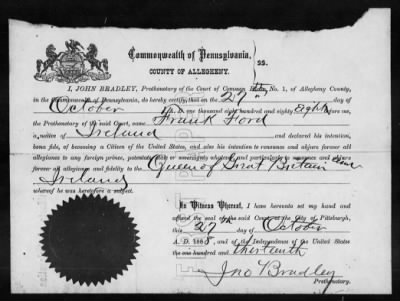 Commonwealth of Pennsylvania,
COUNTY OF ALLEGHENY.
ss.
I, JOHN BRADLEY, Prothonotary of the Court of Common Pleas, No. 1, of Allegheny County,
in the Commonwealth of Pennsylvania, do hereby certify, that on the 27" day of
October one thousand eight hundred and eighty Eight before me,
the Prothonotary of the said Court, came Frank Ford
a native of Ireland and declared his intention,
bona fide, of becoming a Citizen of the United States, and also his intention to renounce and abjure forever all
allegiance to any foreign prince, potentate, state or sovereignty whatever, and particularly to renounce and abjure
forever all allegiance and fidelity to the Queen of Great Britain and
Ireland
whereof he was heretofore a subject.
In Witness Whereof, I have hereunto set my hand and
affixed the seal of the said Court at the City of Pittsburgh,
this 27 day of October
A. D. 1888, and of the Independence of the United States
the one hundred and thirteenth
Jno Bradley
Prothonotary.